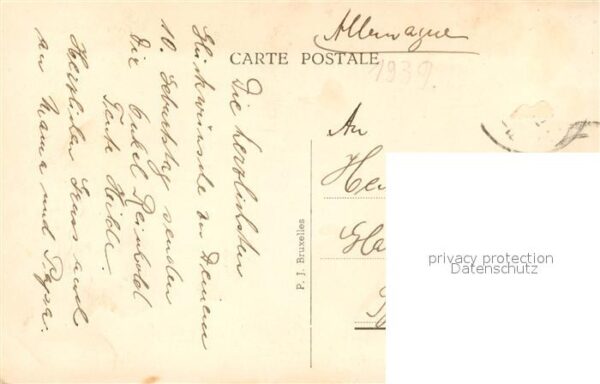 Allemagne
CARTE POSTALE
1939.
Die herzlichsten
Glückwünsche zu Deinem
10. Geburtstag senden
Dir Onkel Reinhold
Tante Hilde.
Herzlichen Gruss auch
an Mama und Papa.
P. I. Bruxelles
An
privacy protection
Datenschutz